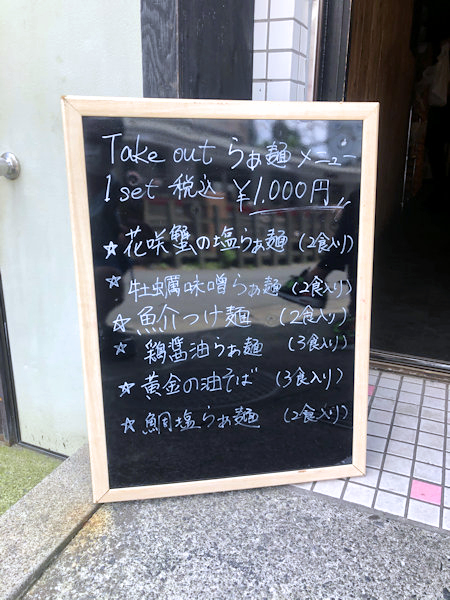 Take out らぁ麺 メニュー
1set 税込 ¥1.000円
☆花咲蟹の塩らぁ麺（2食入り）
☆牡蠣味噌らぁ麺（2食入り）
☆魚介つけ麺（2食入り）
☆鶏醤油らぁ麺（3食入り）
☆黄金の油そば（3食入り）
☆鯛塩らぁ麺（2食入り）